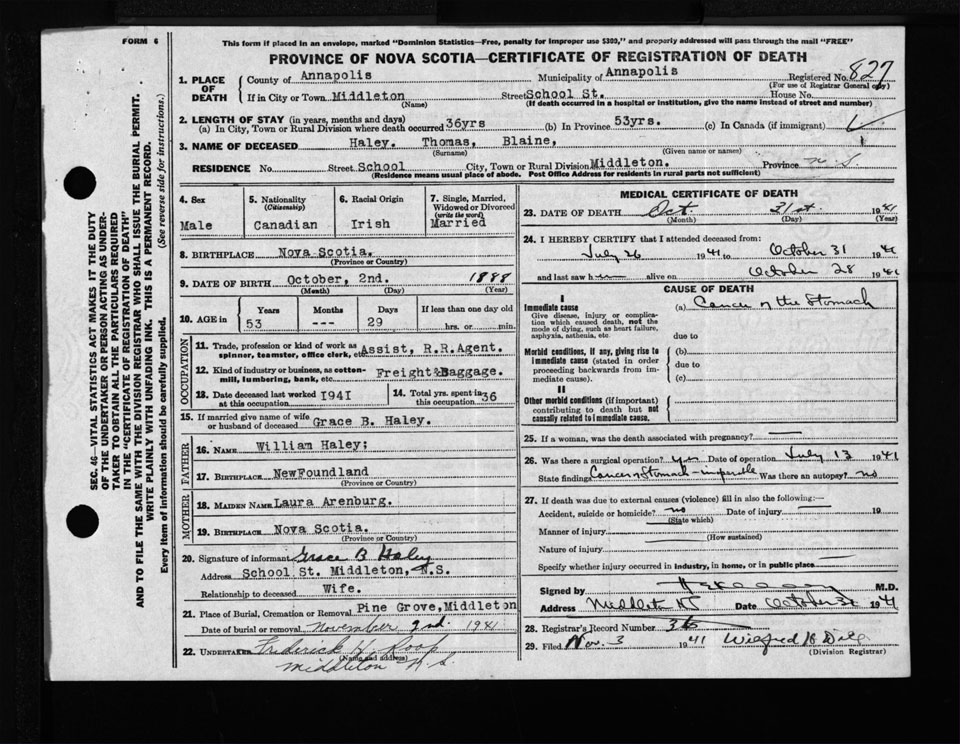 FORM 6
This form if placed in an envelope, marked "Dominion Statistics—Free, penalty for improper use $300," and properly addressed will pass through the mail "FREE"
PROVINCE OF NOVA SCOTIA—CERTIFICATE OF REGISTRATION OF DEATH
SEC. 46—VITAL STATISTICS ACT MAKES IT THE DUTY
OF THE UNDERTAKER OR PERSON ACTING AS UNDER-
TAKER TO OBTAIN ALL THE PARTICULARS REQUIRED
IN THE "CERTIFICATE OF REGISTRATION OF DEATH"
AND TO FILE THE SAME WITH THE DIVISION REGISTRAR WHO SHALL ISSUE THE BURIAL PERMIT.
WRITE PLAINLY WITH UNFADING INK. THIS IS A PERMANENT RECORD.
Every item of information should be carefully supplied. (See reverse side for instructions.)
1. PLACE OF DEATH County of Annapolis Municipality of Annapolis Registered No. 827
(For use of Registrar General only)
If in City or Town Middleton Street School St. House No.
(Name) (If death occurred in a hospital or institution, give the name instead of street and number)
2. LENGTH OF STAY (in years, months and days)
(a) In City, Town or Rural Division where death occurred 36yrs (b) In Province 53yrs. (c) In Canada (if immigrant)
3. NAME OF DECEASED Haley. Thomas, Blaine,
(Surname) (Given name or names)
RESIDENCE No. Street School City, Town or Rural Division Middleton. Province N.S
(Residence means usual place of abode. Post Office Address for residents in rural parts not sufficient)
4. Sex Male
5. Nationality (Citizenship) Canadian
6. Racial Origin Irish
7. Single, Married, Widowed or Divorced (write the word) Married
8. BIRTHPLACE Nova Scotia.
(Province or Country)
9. DATE OF BIRTH October, 2nd. 1888
(Month) (Day) (Year)
10. AGE in Years 53 Months --- Days 29 If less than one day old hrs. or min.
OCCUPATION
11. Trade, profession or kind of work as spinner, teamster, office clerk, etc. Assist, R.R.Agent.
12. Kind of industry or business, as cotton-mill, lumbering, bank, etc. Freight&Baggage.
13. Date deceased last worked at this occupation 1941
14. Total yrs. spent in this occupation 36
15. If married give name of wife or husband of deceased Grace B. Haley.
FATHER
16. NAME William Haley;
17. BIRTHPLACE NewFoundland
(Province or Country)
MOTHER
18. MAIDEN NAME Laura Arenburg.
19. BIRTHPLACE Nova Scotia.
(Province or Country)
20. Signature of informant Grace B Haley
Address School St. Middleton, N.S.
Relationship to deceased Wife.
21. Place of Burial, Cremation or Removal Pine Grove,Middleton
Date of burial or removal November 2nd. 1941
22. UNDERTAKER Frederick H. Roop
(Name and address)
Middleton N.S.
MEDICAL CERTIFICATE OF DEATH
23. DATE OF DEATH Oct. 31st. 1941
(Month) (Day) (Year)
24. I HEREBY CERTIFY that I attended deceased from:
July 26 1941 to October 31 1941
and last saw h alive on October 28 1941
CAUSE OF DEATH
I
Immediate cause (a) Cancer of the Stomach
Give disease, injury or complication which caused death, not the mode of dying, such as heart failure, asphyxia, asthenia, etc.
due to
Morbid conditions, if any, giving rise to immediate cause (stated in order proceeding backwards from immediate cause).
(b)
due to
(c)
II
Other morbid conditions (if important) contributing to death but not causally related to immediate cause.
25. If a woman, was the death associated with pregnancy?
26. Was there a surgical operation? yes Date of operation July 13 1941
State findings Cancer Stomach - inoperable Was there an autopsy? no
27. If death was due to external causes (violence) fill in also the following:—
Accident, suicide or homicide? no Date of injury 19
(State which)
Manner of injury
(How sustained)
Nature of injury
Specify whether injury occurred in industry, in home, or in public place
Signed by M.D.
Address Middleton NS Date October 31 1941
28. Registrar's Record Number 36
29. Filed Nov. 3 1941 Wilfred
(Division Registrar)